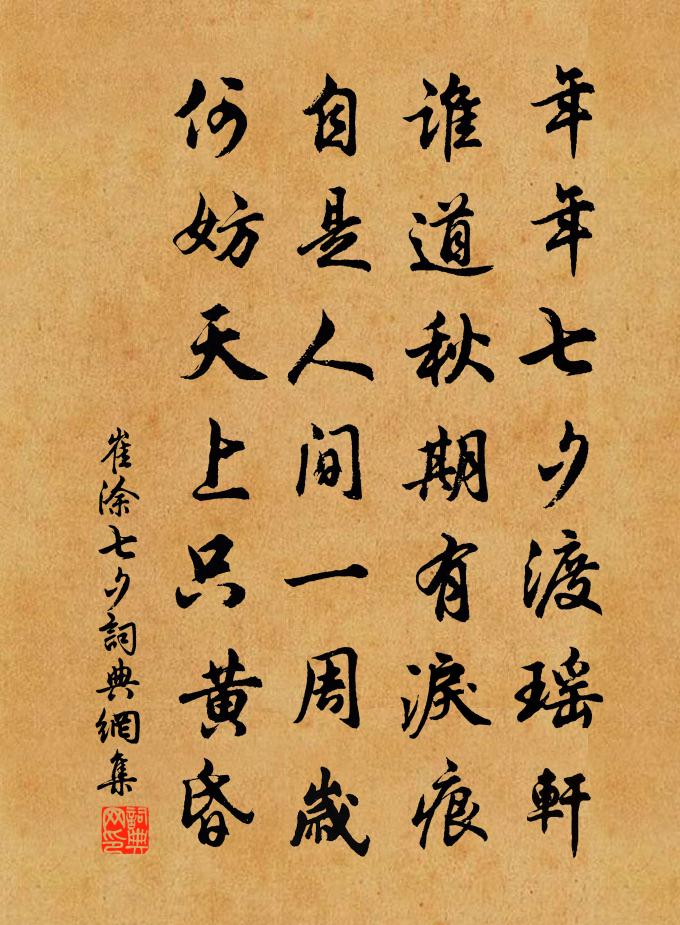 年年七夕渡瑶軒
誰道秋期有淚痕
自是人间一周歲
何妨天上只黄昏
崔涂七夕詞典網集
詞典网印